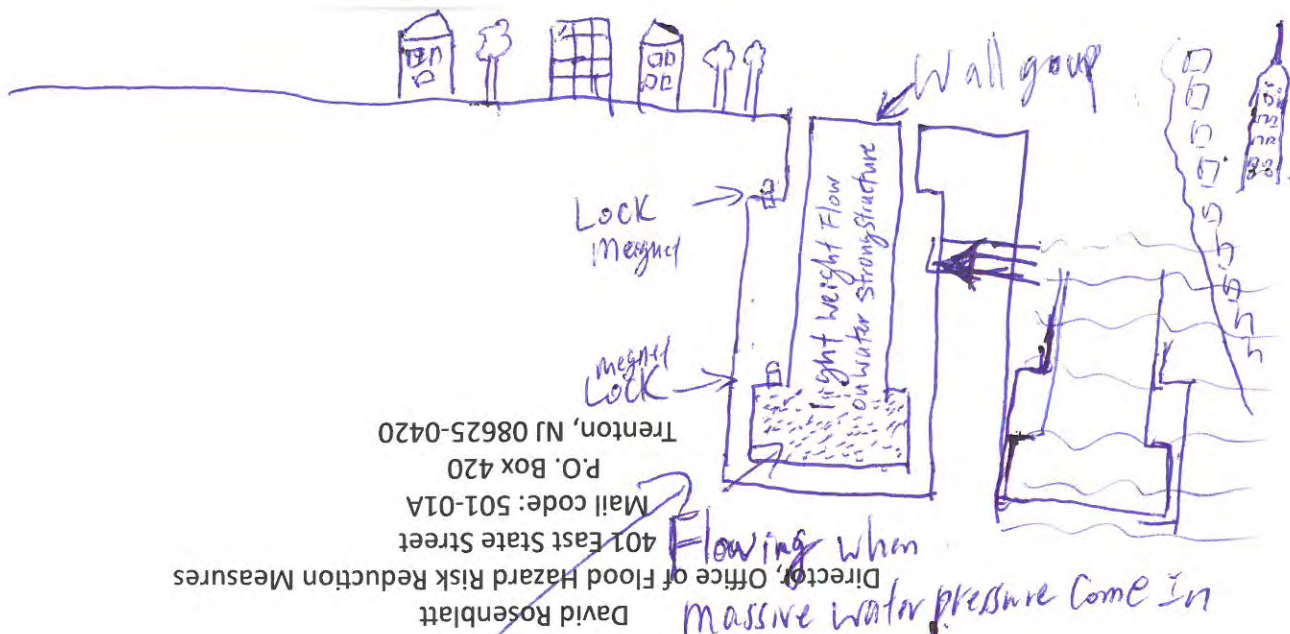 Wall goup
Lock
Meagnel
megnel
Lock
Light Weight Flow
on water Strong Structure
Flowing when
massive water pressure Come In
David Rosenblatt
Director, Office of Flood Hazard Risk Reduction Measures
401 East State Street
Mail code: 501-01A
P.O. Box 420
Trenton, NJ 08625-0420